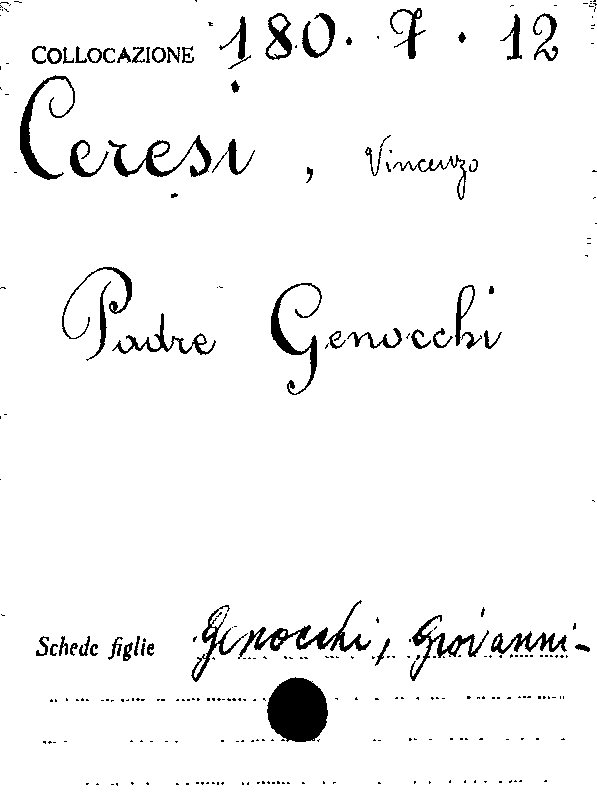 COLLOCAZIONE 180.7.12
Ceresi, Vincenzo
Padre Genocchi
Schede figlie Genocchi, Giovanni-